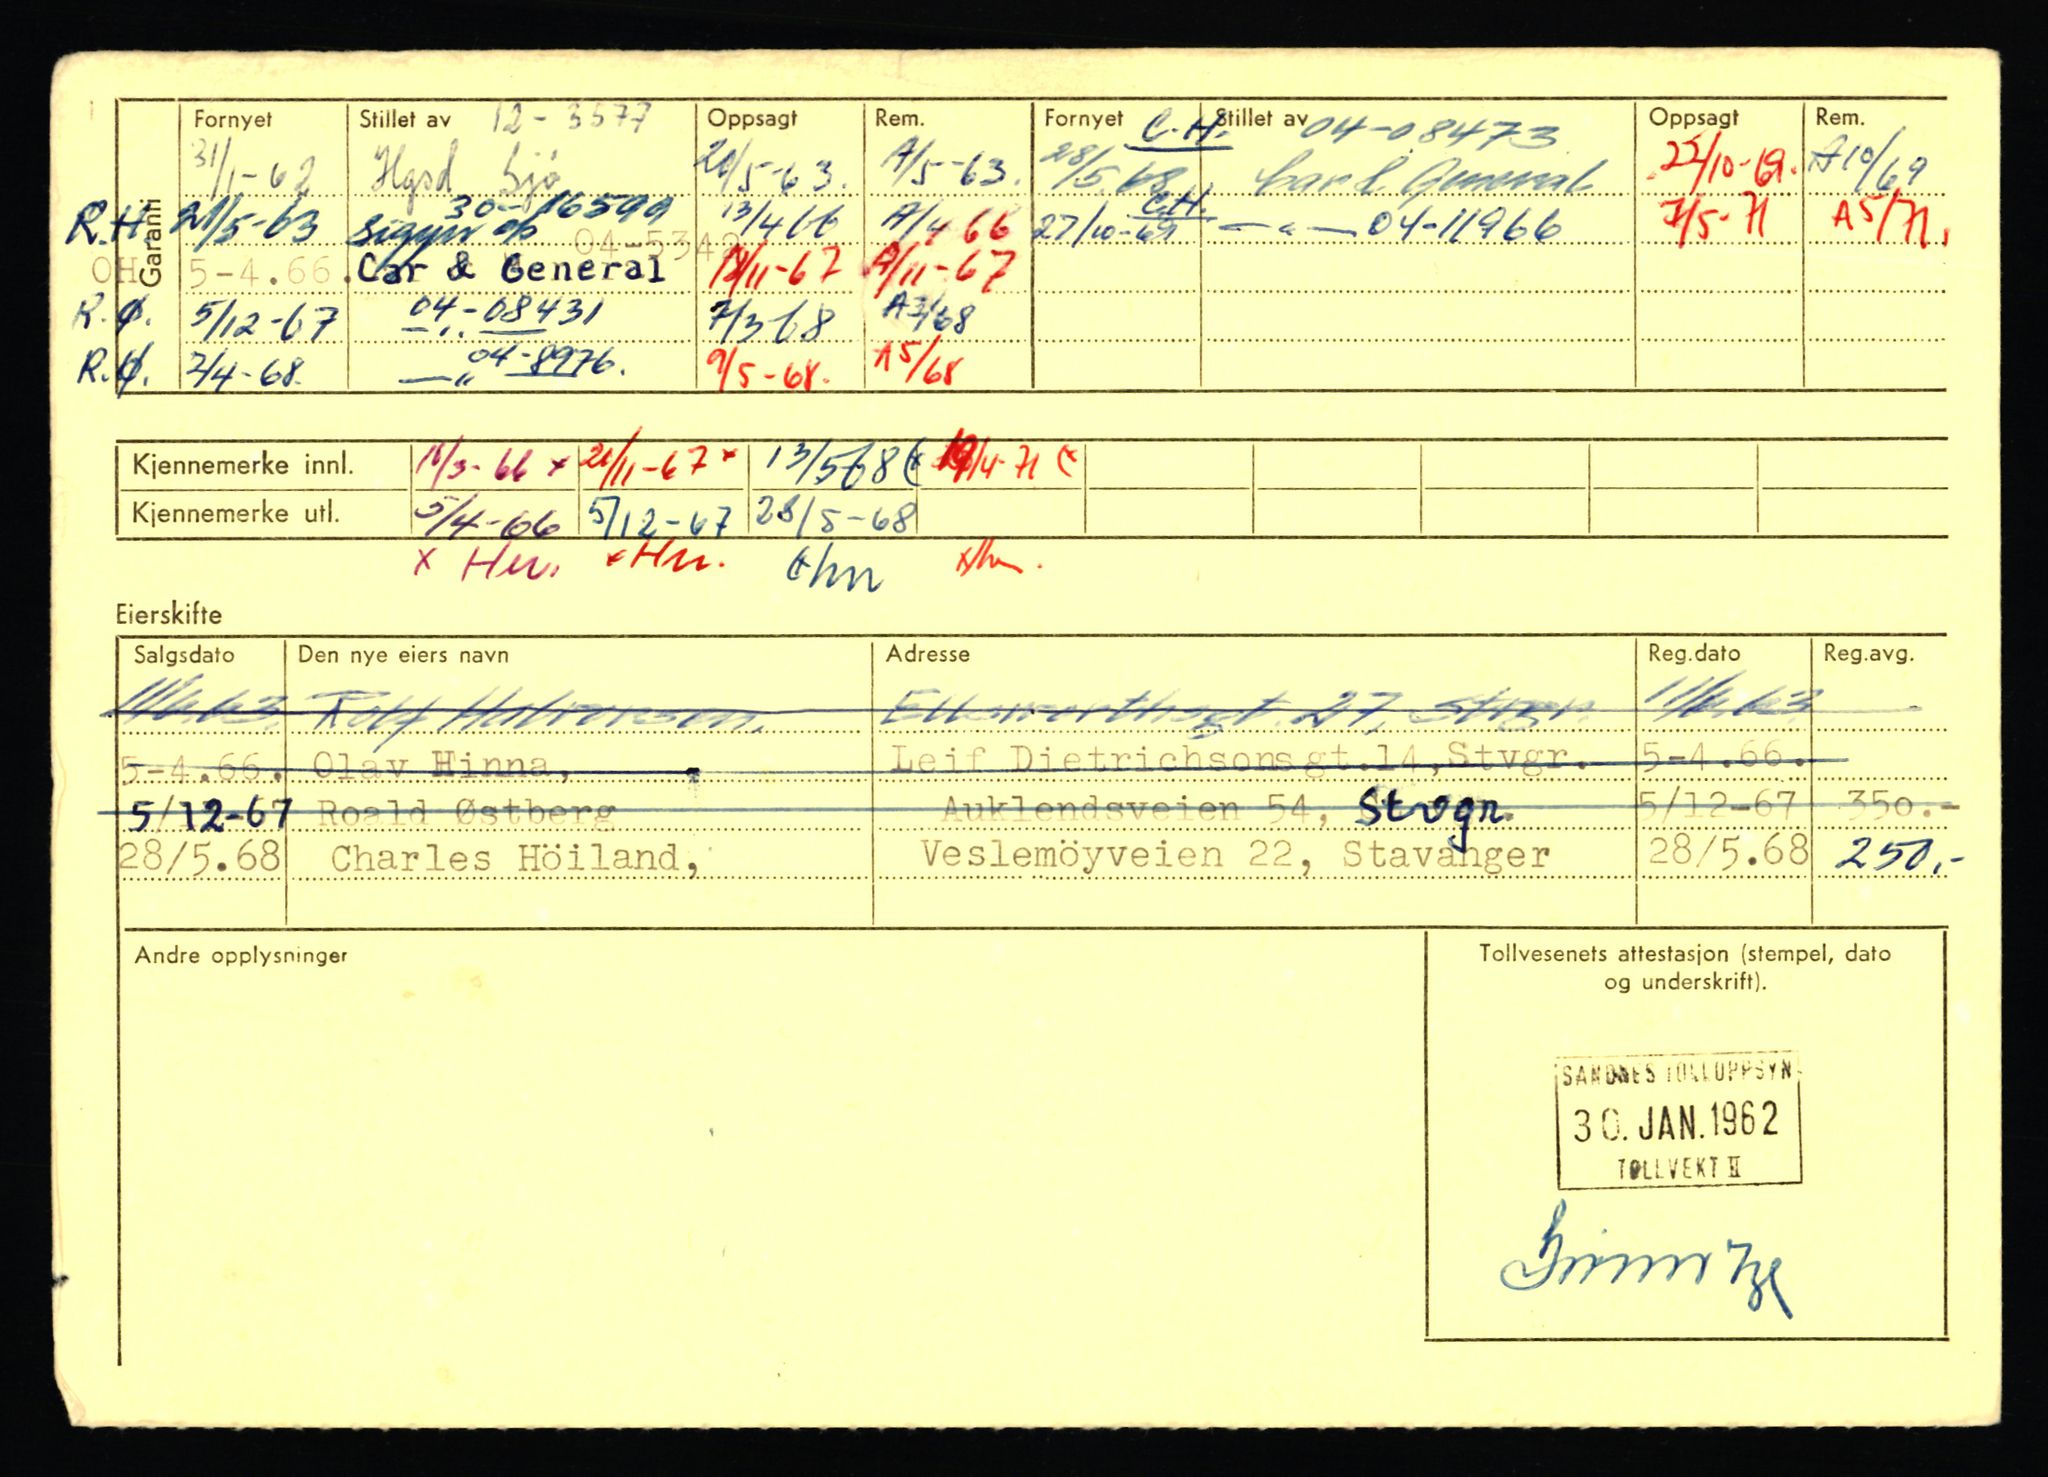 Garanti
Fornyet Stillet av 12-3577 Oppsagt Rem. Fornyet C.H. Stillet av 04-08473 Oppsagt Rem.
31/1-62 Hgsd Sjø 20/5-63. A/5-63. 28/5.68 Car & General 22/10-69. A10/69
R.H. 21/5-63 Sigyn 30-16599 13/4 66 A/4 66 27/10-69 C.H. — " — 04-11966 7/5-71 A5/71.
OH 5-4.66. Car & General 04-5342 /11-67 A/11-67
R.Ø. 5/12-67 —"— 04-08431 7/3-68 A3/68
R.Ø. 2/4-68. —"— 04-8976. 9/5-68. A5/68
Kjennemerke innl. 16/3-66 x 21/11-67 x 13/5 68 (x 19/4-71 (x
Kjennemerke utl. 5/4-66 5/12-67 28/5-68
x Hn. x Hn. (x hn x hn.
Eierskifte
Salgsdato Den nye eiers navn Adresse Reg.dato Reg.avg.
11/6.63. Rolf Halvorsen. Ellsworthsgt. 27, Stvgr. 11/6.63
5-4.66. Olav Hinna, Leif Dietrichsonsgt.14,Stvgr. 5-4.66.
5/12-67 Roald Østberg Auklendsveien 54, Stvgr. 5/12-67 350.-
28/5.68 Charles Höiland, Veslemöyveien 22, Stavanger 28/5.68 250,-
Andre opplysninger
Tollvesenets attestasjon (stempel, dato
og underskrift).
SANDNES TOLLOPPSYN
30. JAN. 1962
TOLLVEKT II